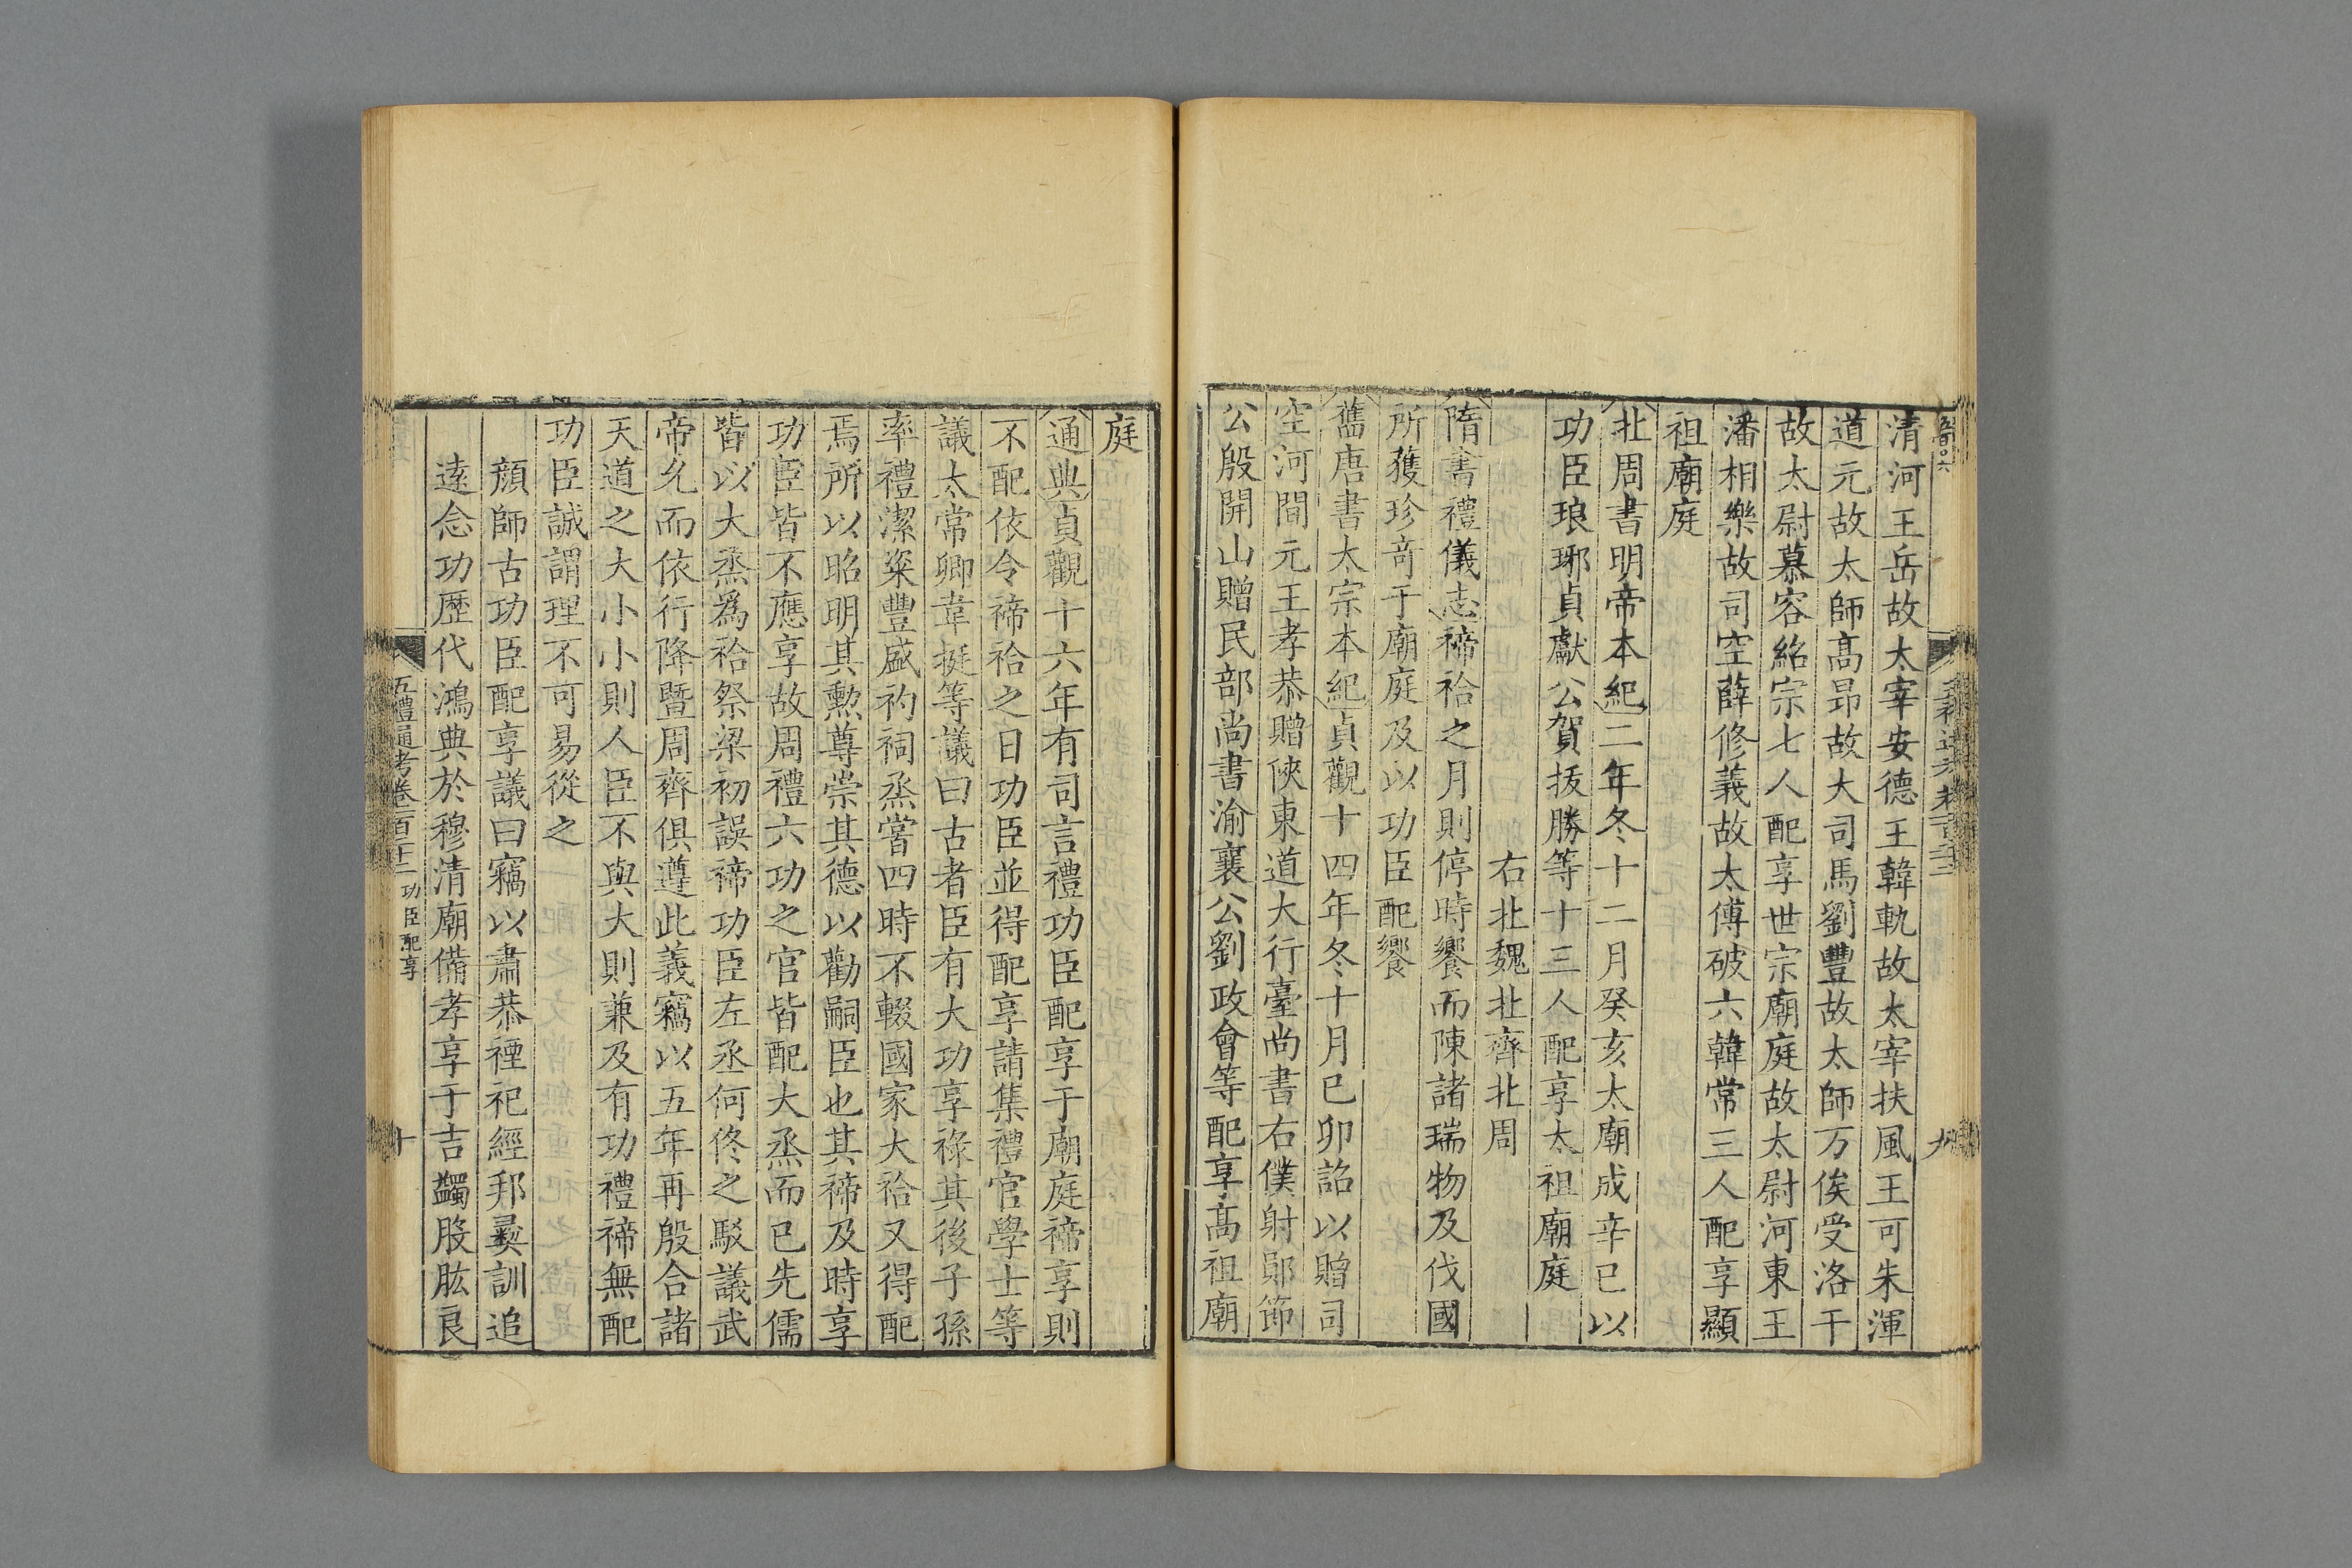 清河王岳故太宰安德王韓軌故太宰扶風王可朱渾
道元故太師高昂故大司馬劉豐故太師万俟受洛干
故太尉慕容紹宗七人配享世宗廟庭故太尉河東王
潘相樂故司空薛修義故太傅破六韓常三人配享顯
祖廟庭
北周書明帝本紀二年冬十二月癸亥太廟成辛巳以
功臣琅琊貞獻公賀拔勝等十三人配享太祖廟庭
右北魏北齊北周
隋書禮儀志禘祫之月則停時饗而陳諸瑞物及伐國
所獲珍奇于廟庭及以功臣配饗
舊唐書太宗本紀貞觀十四年冬十月己卯詔以贈司
空河間元王孝恭贈陝東道大行臺尚書右僕射鄖節
公殷開山贈民部尚書渝襄公劉政會等配享高祖廟
庭
通典貞觀十六年有司言禮功臣配享于廟庭禘享則
不配依令禘祫之日功臣並得配享請集禮官學士等
議太常卿韋挺等議曰古者臣有大功享祿其後子孫
率禮潔粢豐盛礿祠烝嘗四時不輟國家大祫又得配
焉所以昭明其勲尊崇其德以勸嗣臣也其禘及時享
功臣皆不應享故周禮六功之官皆配大烝而已先儒
皆以大烝爲祫祭梁初誤禘功臣左丞何佟之駁議武
帝允而依行降暨周齊俱遵此義竊以五年再殷合諸
天道之大小小則人臣不與大則兼及有功禮禘無配
功臣誠謂理不可易從之
顏師古功臣配享議曰竊以肅恭禋祀經邦彝訓追
遠念功歷代鴻典於穆清廟備孝享于吉蠲股肱良
五禮通考卷一百二十二 功臣配享
十